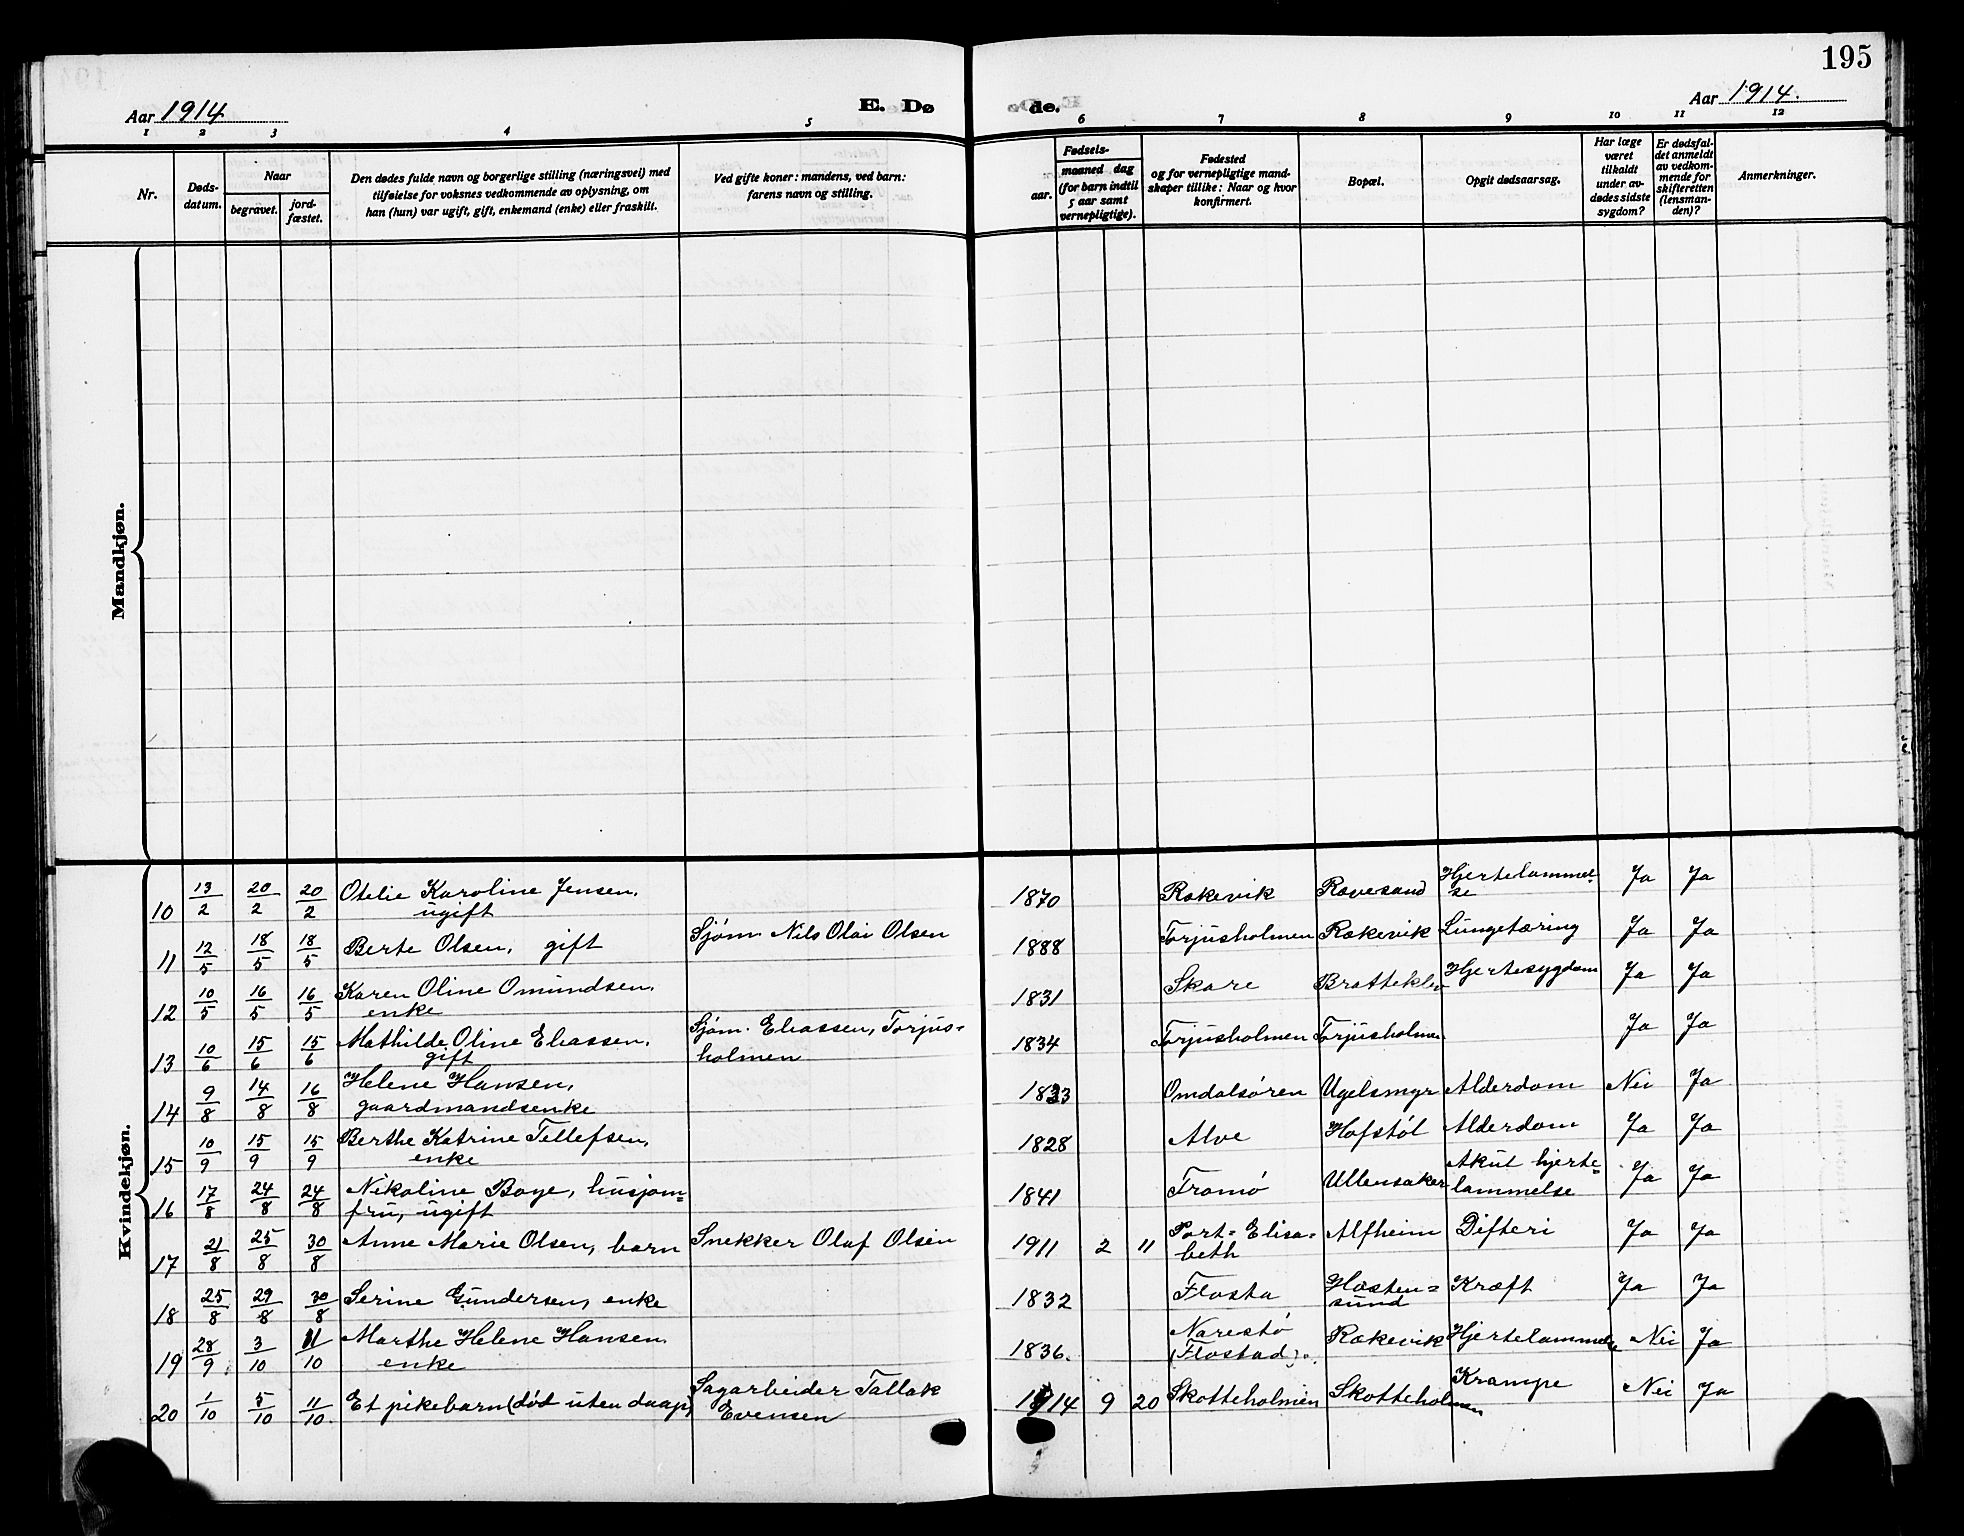 195
Aar 1914 E. Døde. Aar 1914.
1 2 3 4 5 6 7 8 9 10 11 12
Nr. Dødsdatum. Naar begravet. jordfæstet. Den dødes fulde navn og borgerlige stilling (næringsvei) med tilføielse for voksnes vedkommende av oplysning, om han (hun) var ugift, gift, enkemand (enke) eller fraskilt. Ved gifte koner: mandens, ved barn: farens navn og stilling. Fødsels- aar. maaned dag (for barn indtil 5 aar samt vernepligtige). Fødested og for vernepligtige mandskaper tillike: Naar og hvor konfirmert. Bopæl. Opgit dødsaarsag. Har læge været tilkaldt under avdødes sidste sygdom? Er dødsfaldet anmeldt av vedkommende for skifteretten (lensmanden)? Anmerkninger.
Mandkjøn.
Kvindekjøn.
10 13/2 20/2 20/2 Otelie Karoline Jensen, ugift 1870 Rakevik Ravesand Hjertelammelse Ja Ja
11 12/5 18/5 18/5 Berte Olsen, gift Sjøm. Nils Olai Olsen 1888 Torjusholmen Rækevik Lungetæring Ja Ja
12 10/5 16/5 16/5 Karen Oline Omundsen, enke 1831 Skare Bratteklev Hjertesygdom Ja Ja
13 10/6 15/6 15/6 Mathilde Oline Eliassen, gift Sjøm. Eliassen, Torjusholmen 1834 Torjusholmen Torjusholmen Ja Ja
14 9/8 14/8 16/8 Helene Hansen, gaardmandsenke 1833 Omdalsøren Ugelsmyr Alderdom Nei Ja
15 10/9 15/9 15/9 Berthe Katrine Tellefsen, enke 1828 Alve Hofstøl Alderdom Ja Ja
16 17/8 24/8 24/8 Nikoline Boye, husjomfru, ugift 1841 Tromø Ullensaker Akut hjertelammelse Ja Ja
17 21/8 25/8 30/8 Anne Marie Olsen, barn Snekker Olaf Olsen 1911 2 11 Port-Elisabeth Alfheim Difteri Ja Ja
18 25/8 29/8 30/8 Serine Gundersen, enke 1832 Flosta Hastensund Kræft Ja Ja
19 28/9 3/10 11/10 Marthe Helene Hansen, enke 1836. Narestø (Flostad). Rækevik Hjertelammelse Nei Ja
20 1/10 5/10 11/10 Et pikebarn (død uten daap) Sagarbeider Tallak Evensen 1914 9 20 Skotteholmen Skotteholmen Krampe Nei Ja